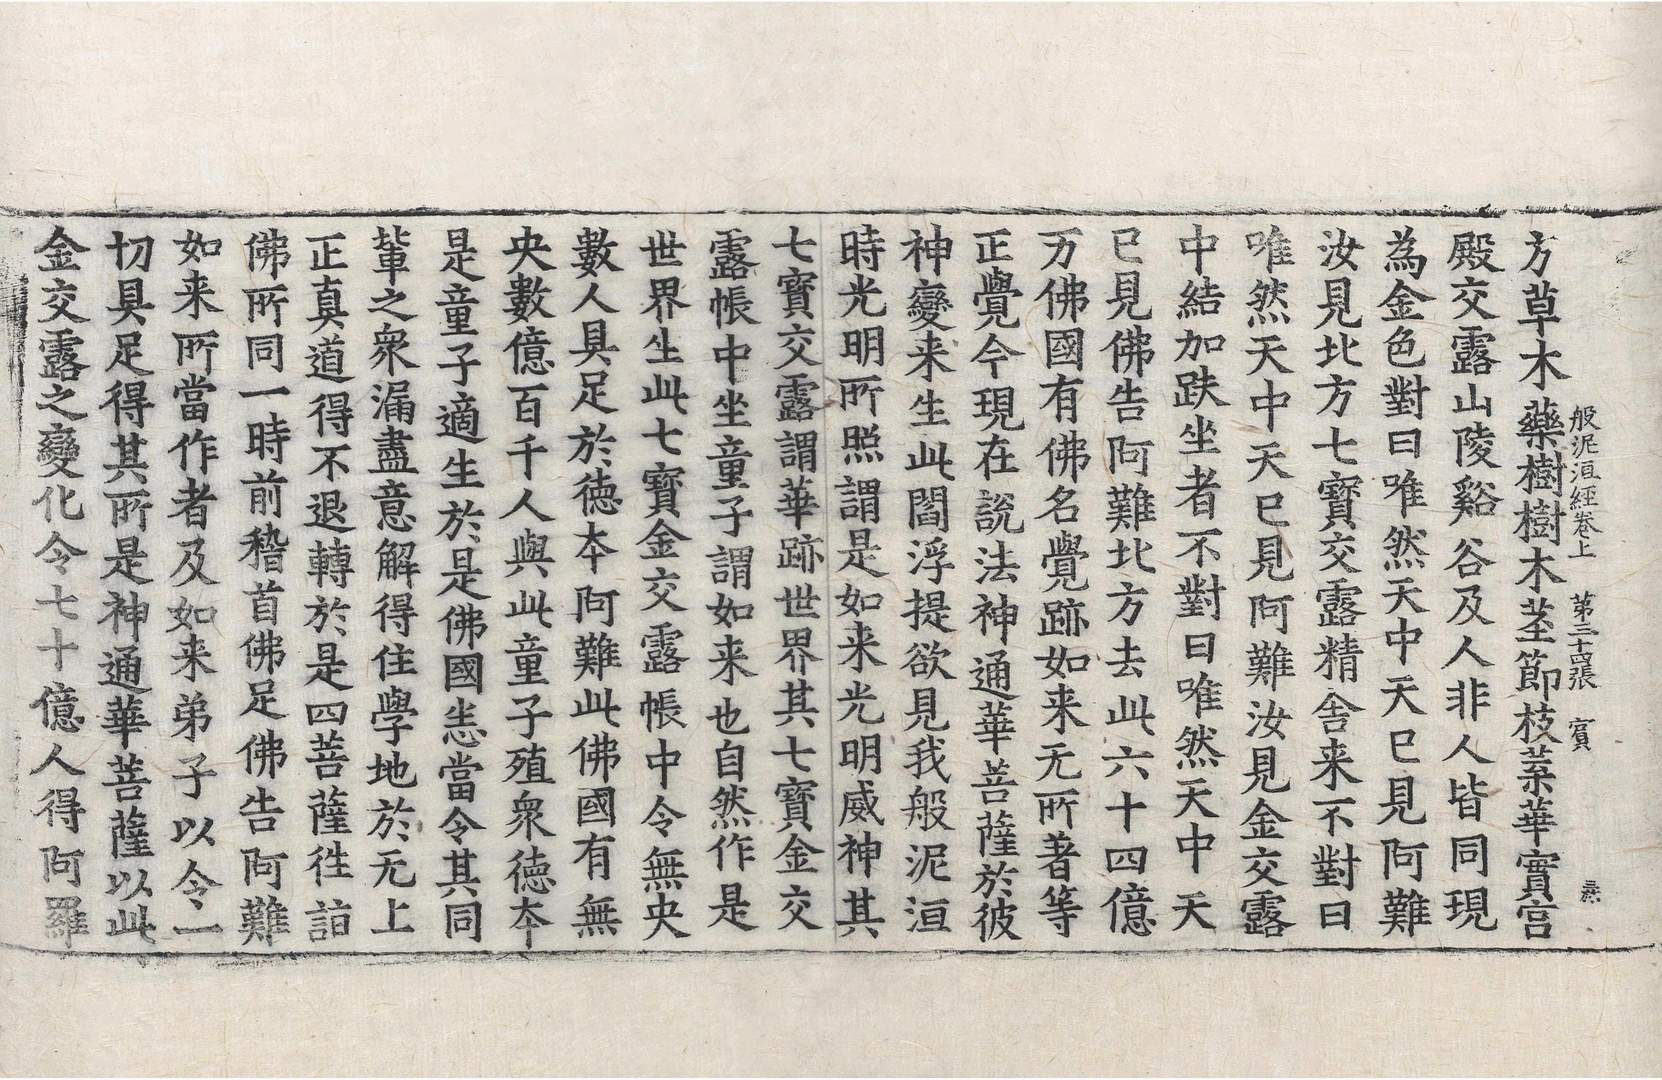 般泥洹經卷上 第三十四張 賔
方草木藥樹樹木莖節枝葉華實宫
殿交露山陵谿谷及人非人皆同現
為金色對曰唯然天中天已見阿難
汝見北方七寶交露精舍来不對曰
唯然天中天已見阿難汝見金交露
中結加趺坐者不對曰唯然天中天
已見佛告阿難北方去此六十四億
万佛國有佛名覺跡如来无所著等
正覺今現在說法神通華菩薩於彼
神變来生此閻浮提欲見我般泥洹
時光明所照謂是如来光明威神其
七寶交露謂華跡世界其七寶金交
露帳中坐童子謂如来也自然作是
世界生此七寶金交露帳中令無央
數人具足於德本阿難此佛國有無
央數億百千人與此童子殖衆德本
是童子適生於是佛國悉當令其同
軰之衆漏盡意解得住學地於无上
正真道得不退轉於是四菩薩徃詣
佛所同一時前稽首佛足佛告阿難
如来所當作者及如来弟子以令一
切具足得其所是神通華菩薩以此
金交露之變化令七十億人得阿羅